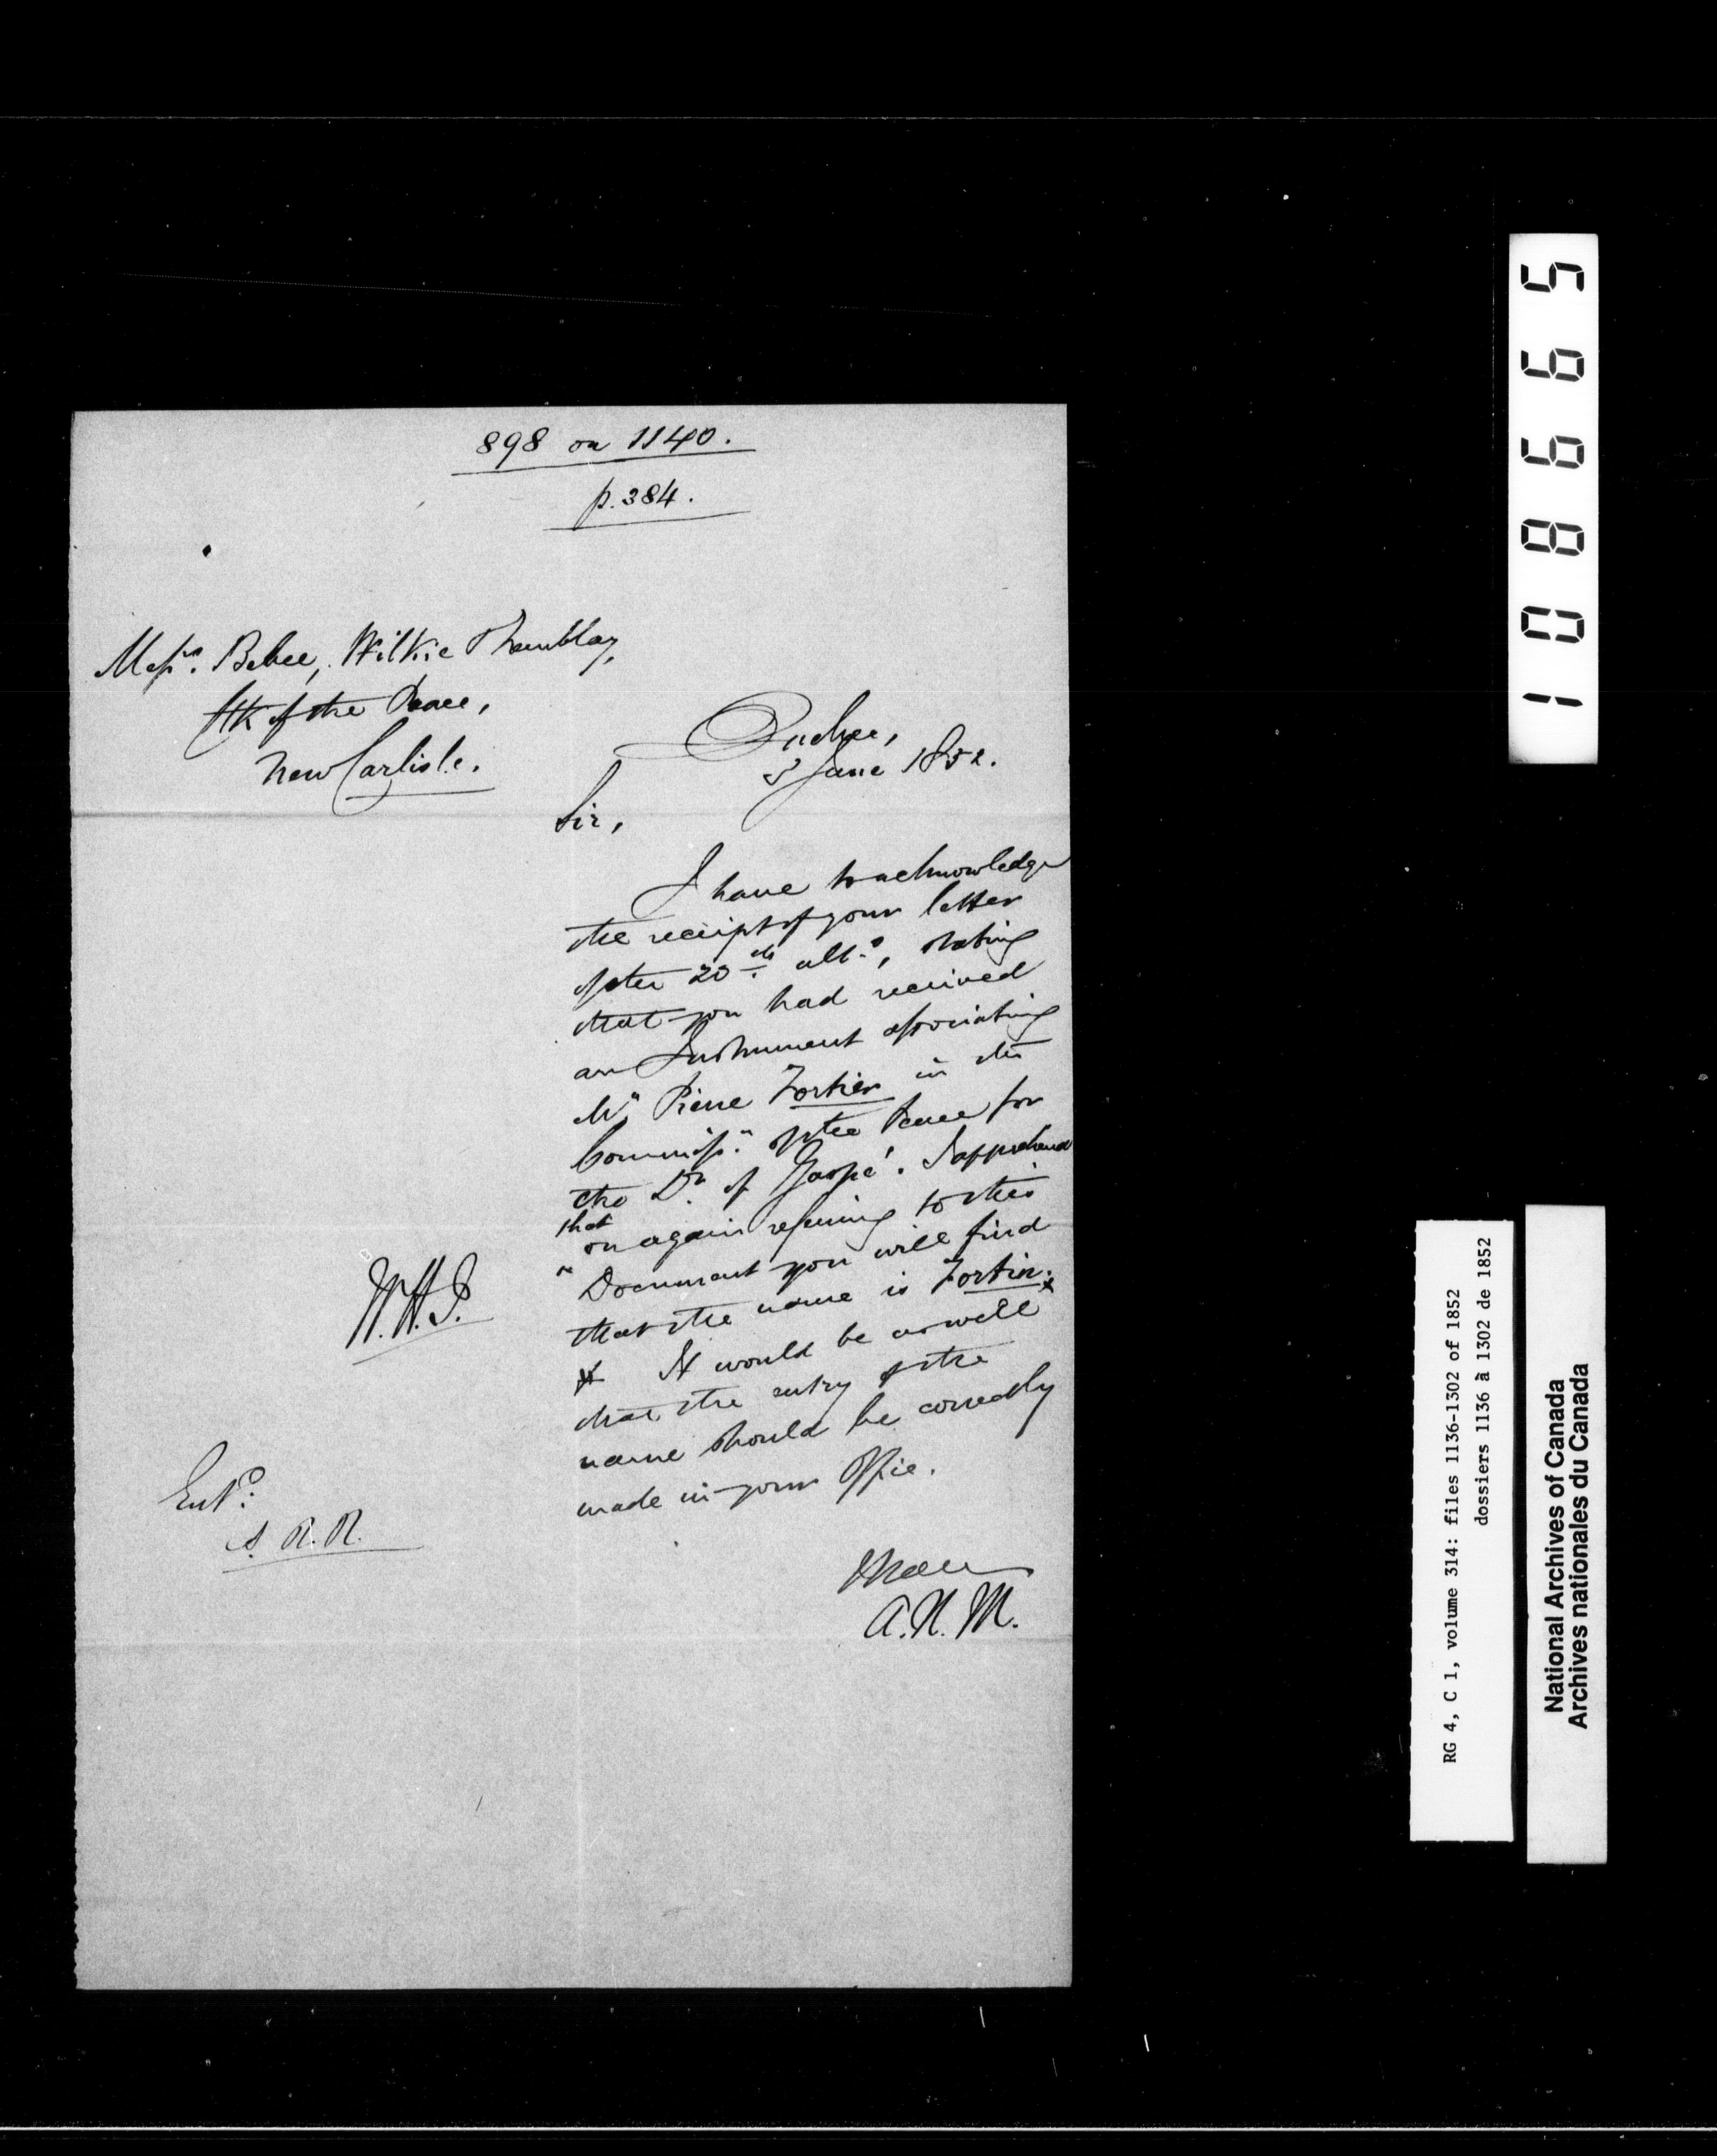 898 on 1140.
p. 384.
Messrs. Bebee, Wilkie & Tremblay,
Clk of the Peace,
New Carlisle.
Quebec,
5 June 1852.
Sir,
I have to acknowledge
the receipt of your letter
of the 20th ulto., stating
that you had received
an Instrument associating
Mr Pierre Fortier in the
Commissn. of the Peace for
the Dt. of Gaspé. I apprehend
that
on again referring to this
" Document you will find
that the name is Fortin. x
x It would be as well
that the entry of the
name should be correctly
made in your Office.
W.H.P.
Entd.
A. R. R.
I have
A. N. M.
108665
RG 4, C 1, volume 314: files 1136-1302 of 1852
dossiers 1136 à 1302 de 1852
National Archives of Canada
Archives nationales du Canada